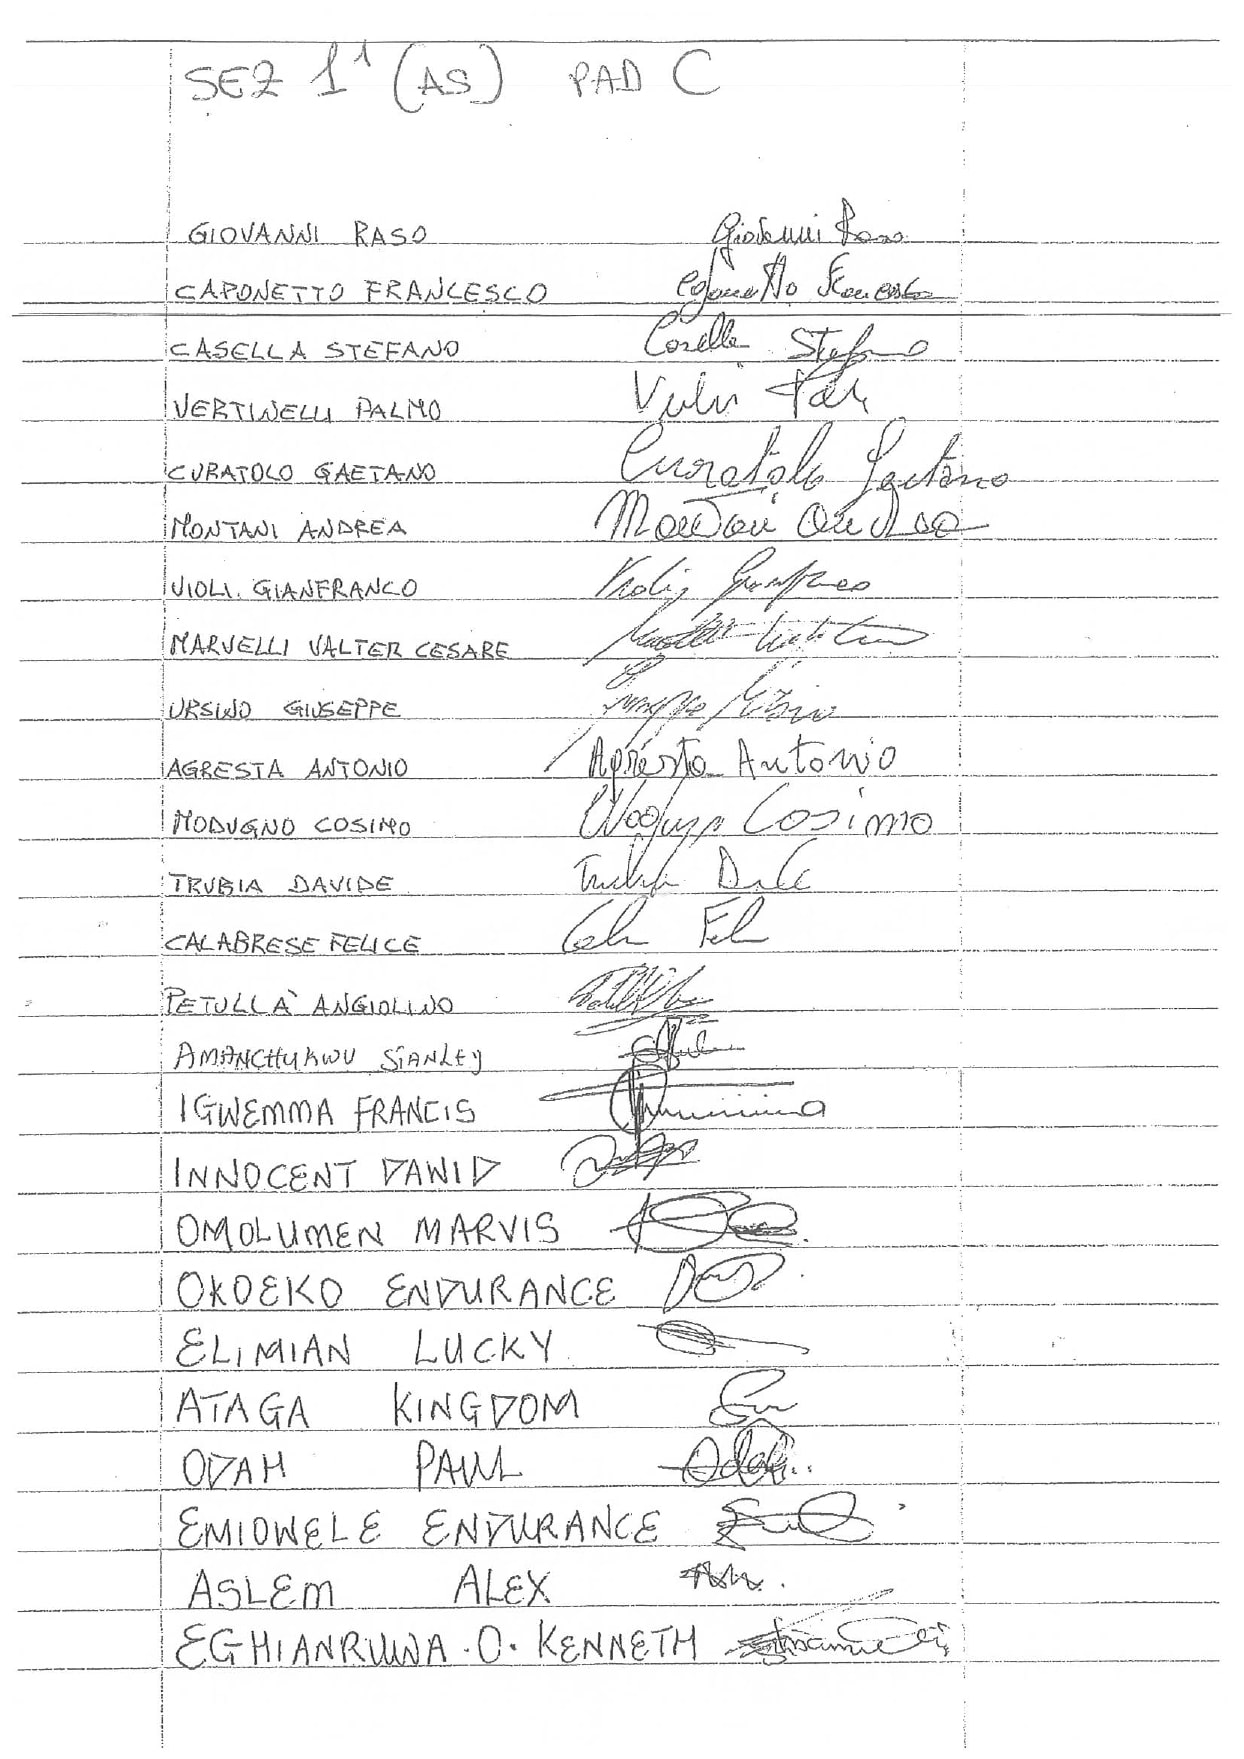 SEZ 1^A (AS) PAD C
GIOVANNI RASO Giovanni Raso
CAPONETTO FRANCESCO Caponetto Francesco
CASELLA STEFANO Casella Stefano
VERTINELLI PALMO
CURATOLO GAETANO Curatolo Gaetano
MONTANI ANDREA Montani Andrea
VIOLI. GIANFRANCO Violi Gianfranco
MARVELLI VALTER CESARE
URSINO GIUSEPPE Giuseppe Ursino
AGRESTA ANTONIO Agresta Antonio
MODUGNO COSIMO Modugno Cosimo
TRUBIA DAVIDE
CALABRESE FELICE
PETULLA' ANGIOLINO
AMANCHUKWU STANLEY
IGWEMMA FRANCIS
INNOCENT DAWID
OMOLUMEN MARVIS
OKOEKO ENDURANCE
ELIMIAN LUCKY
ATAGA KINGDOM
ODAH PAUL
EMIOWELE ENDURANCE
ASLEM ALEX
EGHIANRUWA . O. KENNETH